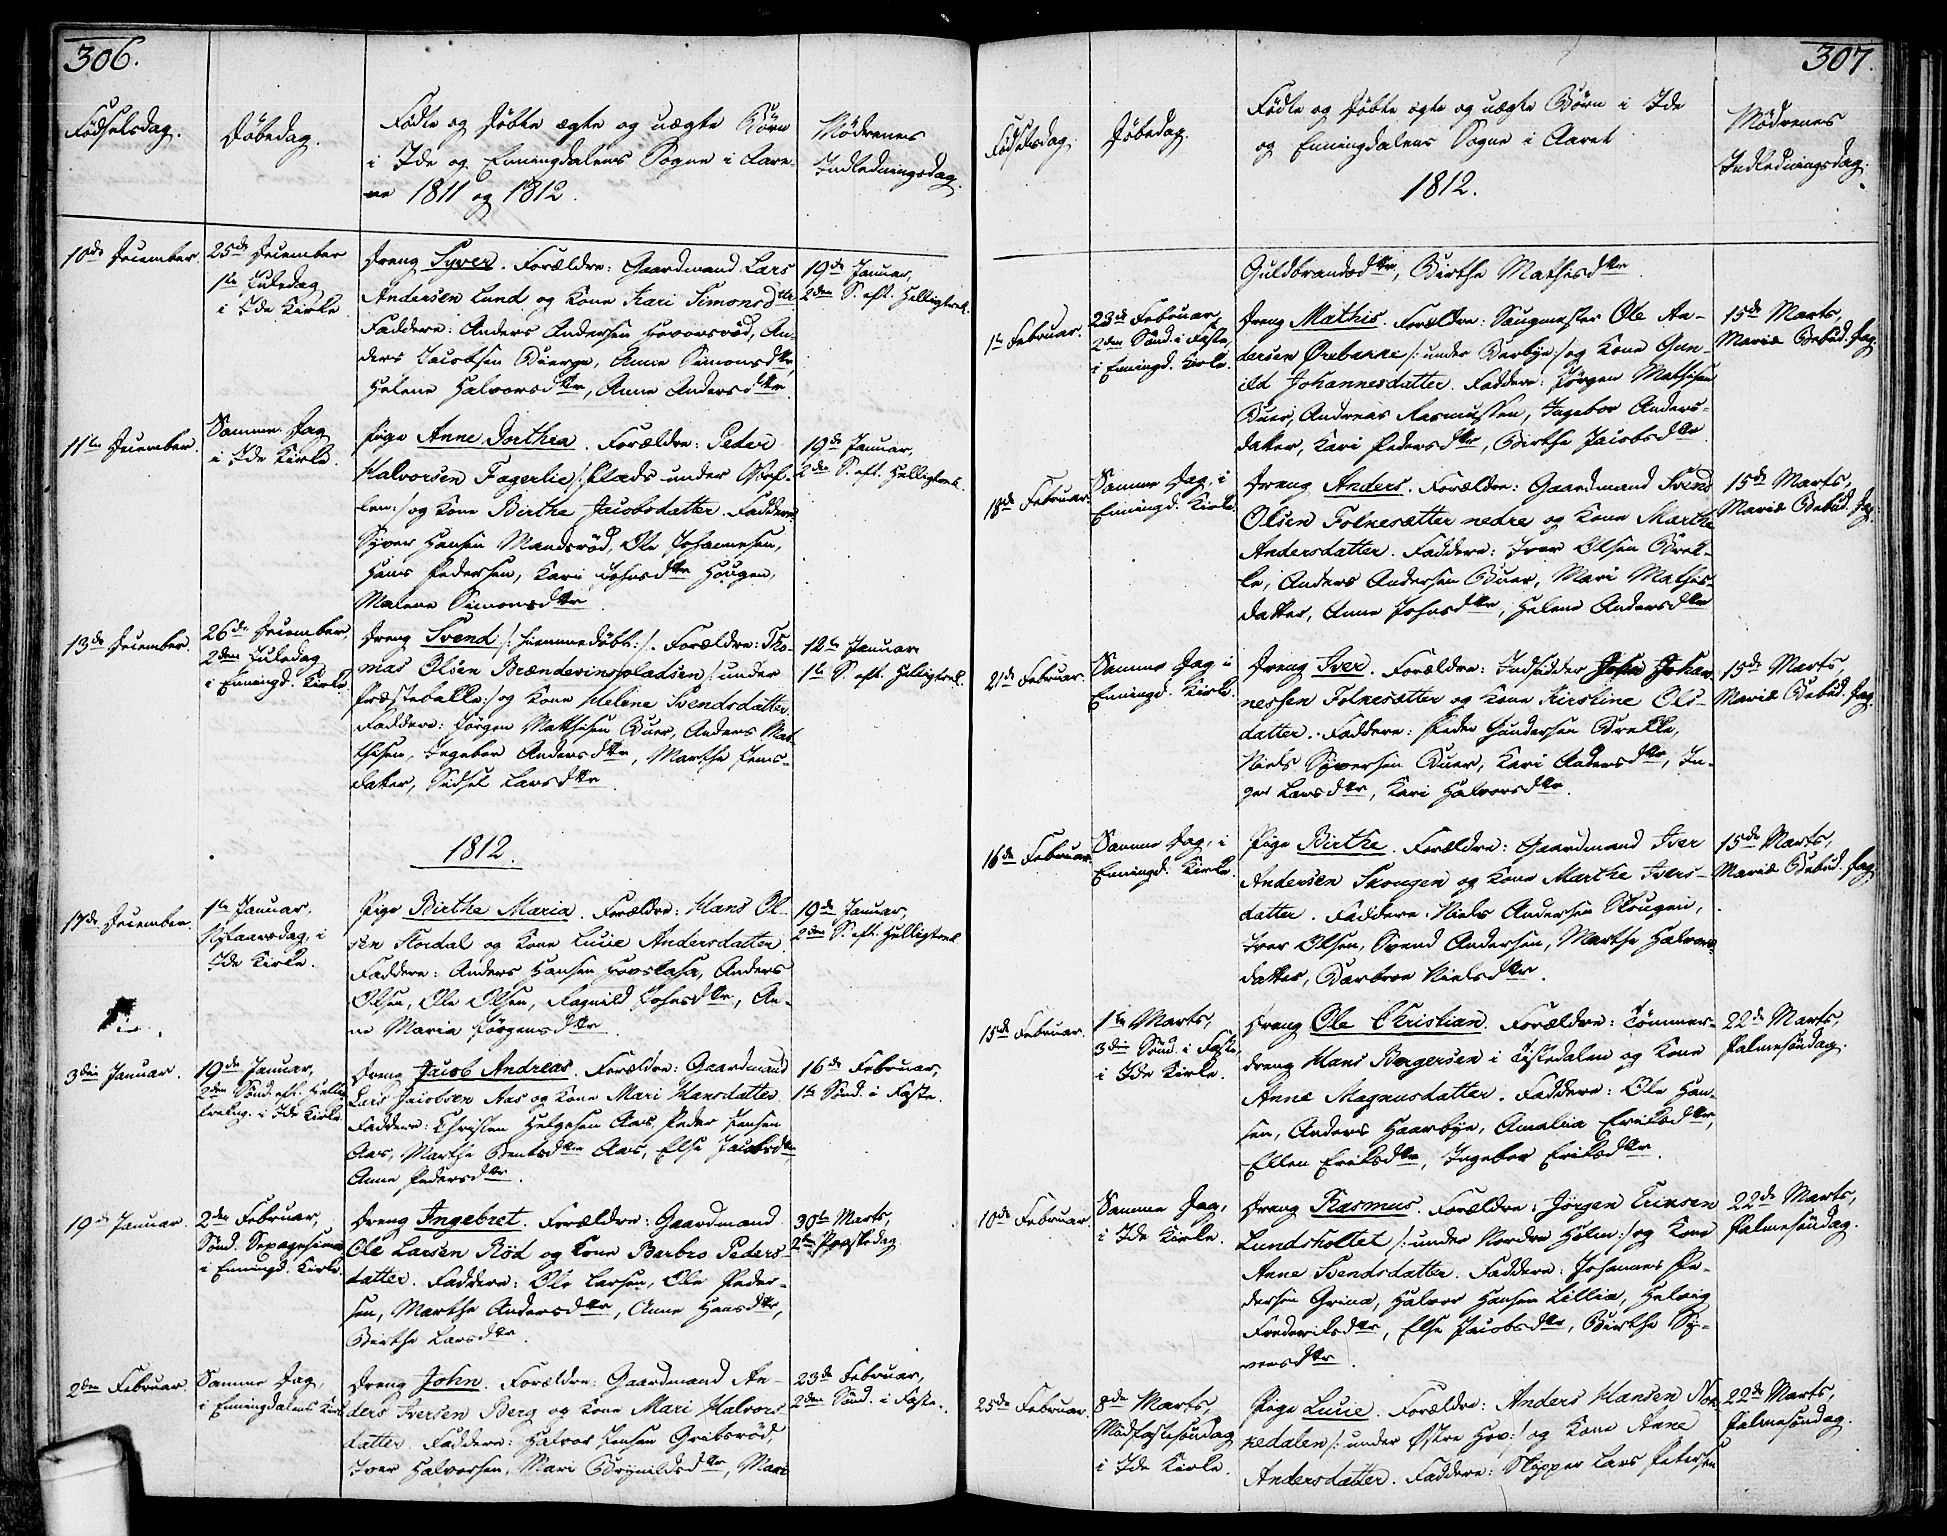 306.
Födselsdag.
Döbedag.
Födte og Döbte ægte og uægte Börn
i Ide og Enningdalens Sogne i Aare-
ne 1811 og 1812.
Mödrenes
Indledningsdag.
10de December.
25de December
1ste Juledag
i Ide Kirke
Dreng Syver. Forældre: Gaardmand Lars
Andersen Lund og Kone Kari Simonsdttr
Faddere: Anders Andersen
ders Jacobsen Anne Simonsdttr,
Helene Halvorsdttr, Anne Andersdttr
19de Januar,
2den S. eft. Helligtrek.
11te December.
Samme Dag
i Ide Kirke.
Pige Anne Dorthea. Forældre: Peder
Halvorsen Fagerlie /: Plads under
:/ og Kone Birthe Jacobsdatter. Faddere
Syver Hansen Mandsröd, Ole Johannesen,
Hans Pedersen, Kari Johnsdttr Hougen,
Malene Simonsdttr
19de Januar,
2den S. eft. Helligtrek.
13de December.
26de December,
2den Juledag
i Enningd. Kirke
Dreng Svend /: hiemmedöbt :/. Forældre: Tho-
mas Olsen Brændevinspladsen /: under
Præstebakke :/ og Kone Helene Svendsdatter
Faddere: Jörgen Mathisen Buer, Anders Mat-
thisen, Ingebor Andersdttr, Marthe Jens-
datter, Sidsel Larsdttr
12te Januar
1ste S. eft. Helligtrek.
1812.
17de December.
1ste Januar,
Nytaarsdag, i
Ide Kirke.
Pige Birthe Maria. Forældre: Hans Ol-
sen Kordal og Kone Lucie Andersdatter
Faddere: Anders Hansen Anders
Olsen, Ole Olsen, Ragnild Johnsdttr, An-
ne Maria Jörgensdttr
19de Januar,
2den S. eft. Helligtrek.
3die Januar.
19de Januar,
2den Sönd. eft. Hellig-
trekng. i Ide Kirke
Dreng Jacob Andreas. Forældre: Gaardmand
Lars Jacobsen Aas og Kone Mari Hansdatter
Faddere: Christen Helgesen Aas, Peder Jensen
Aas, Marthe Bentsdttr Aas, Else Jacobsdttr
Anne Pedersdttr.
16de Februar,
1ste Sönd. i Faste.
19de Januar.
2den Februar,
Sönd. Sexagesima
i Enningd. Kirke
Dreng Ingebret. Forældre: Gaardmand
Ole Larsen Röd og Kone Barbro Peders-
datter. Faddere: Ole Larsen, Ole Peder-
sen, Marthe Andersdttr, Anne Hansdttr,
Birthe Larsdttr.
30te Marts,
2den Paaskedag
2den Februar.
Samme Dag,
i Enningdalens Kirke
Dreng John. Forældre: Gaardmand An-
ders Iversen Berg og Kone Mari Halvors-
datter. Faddere: Halvor Jensen Gribsröd,
Iver Halvorsen, Mari Brynildsdttr, Mari
23de Februar,
2den Sönd. i Faste.
307.
Födselsdag.
Döbedag.
Födte og Döbte ægte og uægte Börn i Ide
og Enningdalens Sogne i Aaret
1812.
Mödrenes
Indledningsdag.
Guldbrandsdttr, Birthe Mathisdttr
1ste Februar.
23de Februar,
2den Sönd. i Faste,
i Enningd. Kirke.
Dreng Mathis. Forældre: Saugmester Ole An-
dersen Örebakke /: under Berbye :/ og Kone Gun-
ild Johannesdatter. Faddere: Jörgen Mathisen
Buer, Andreas Rasmussen, Ingebor Anders-
datter, Kari Pedersdttr, Birthe Jacobsdttr
15de Marts,
Mariæ Bebud. Dag.
18de Februar
Samme Dag, i
Enningd. Kirke.
Dreng Anders. Forældre: Gaardmand Svend
Olsen Folkesætter nedre og Kone Marthe
Andersdatter. Faddere: Iver Olsen Brek-
ke, Anders Andersen Buer, Mari Mathis
datter, Anne Johnsdttr, Helene Andersdttr
15de Marts,
Mariæ Bebud. Dag
21de Februar.
Samme Dag i
Enningd. Kirke.
Dreng Iver. Forældre: Indsidder John Johan
nessen Folkesætter og Kone Kirstine Ols-
datter. Faddere: Peder Gundersen Brekke,
Niels Syversen Buer, Kari Andersdttr, In-
ger Larsdttr, Kari Halvorsdttr.
15de Marts,
Mariæ Bebud. Dag.
16de Februar.
Samme Dag, i
Enningd. Kirke.
Pige Birthe. Forældre: Gaardmand Iver
Andersen Skougen og Kone Marthe Ivers-
datter. Faddere: Niels Andersen Skougen,
Iver Olsen, Svend Andersen, Marthe Halvors
datter, Barbroe Nielsdttr.
15de Marts,
Mariæ Bebud. Dag
15de Februar.
1ste Marts,
3die Sönd. i Faste,
i Ide Kirke.
Dreng Ole Christian. Forældre: Tömmer-
dreng Hans Borgersen i Tistedalen og Kone
Anne Magnusdatter. Faddere: Ole Han-
sen, Anders Haarbye, Amalia Eriksdttr,
Ellen Eriksdttr, Ingebor Eriksdttr.
22de Marts,
Palmesöndag.
10de Februar.
Samme Dag,
i Ide Kirke.
Dreng Rasmus. Forældre: Jörgen Ericsen
Lundsholtet /: under Nordre Holm :/ og Kone
Anne Svendsdatter. Faddere: Johannes Pe-
dersen Halvor Hansen Lillia, Helvig
Frederiksdttr, Else Jacobsdttr, Birthe Sy-
versdttr.
22de Marts,
Palmesöndag.
25de Februar.
8de Marts,
Midfastesöndag
i Ide Kirke.
Pige Lucie. Forældre: Anders Hansen Nok-
kedalen /: under Östre Hov :/ og Kone Anne
Andersdatter. Faddere: Skipper Lars Petersen
22de Marts,
Palmesöndag.